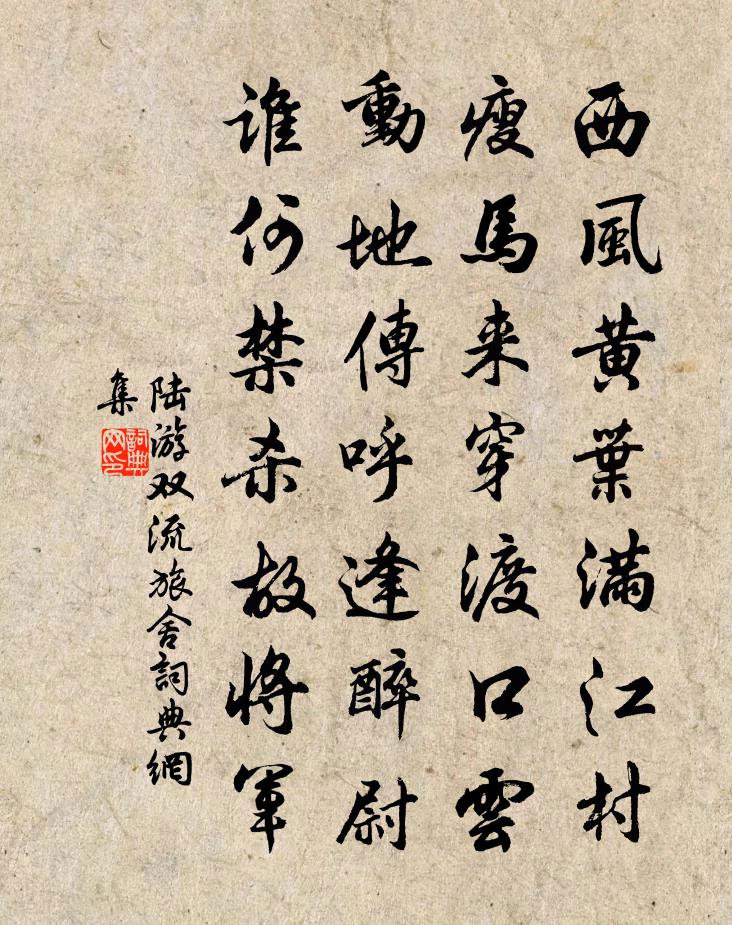 西風黄葉滿江村
瘦馬来穿渡口雲
動地傳呼逢醉尉
谁何禁杀故將軍
陆游双流旅舍詞典網
集
詞典
网印